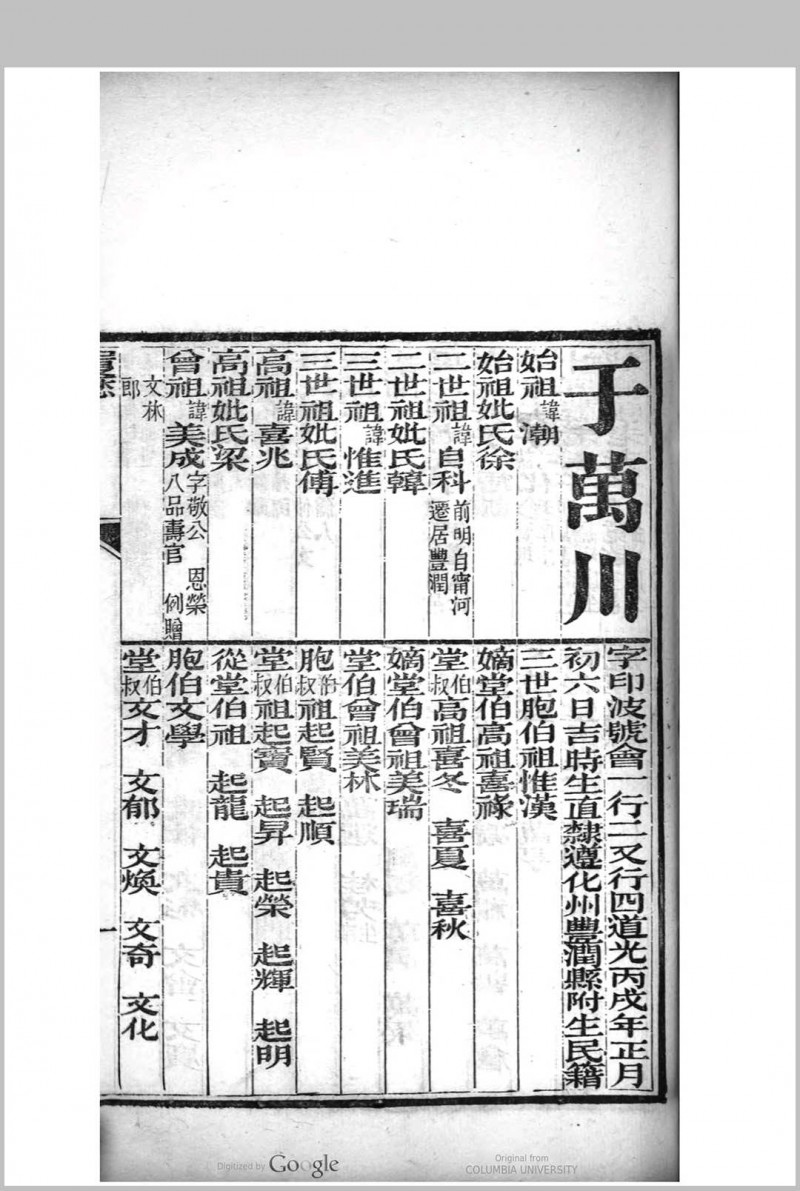 于萬川
字印波號會一行二又行四道光丙戌年正月
初六日吉時生直隸遵化州豐潤縣附生民籍
始祖諱潮
始祖妣氏徐
二世祖諱自科前明自甯河遷居豐潤
二世祖妣氏韓
三世祖諱惟進
三世祖妣氏傅
高祖諱喜兆
高祖妣氏梁
曾祖諱美成字敬公 恩榮八品壽官 例贈
文林郎
三世胞伯祖惟漢
嫡堂伯高祖喜祿
堂伯叔高祖喜冬 喜夏 喜秋
嫡堂伯曾祖美瑞
堂伯曾祖美林
胞伯叔祖起賢 起順
堂伯叔祖起寶 起昇 起榮 起輝 起明
從堂伯祖 起龍 起貴
胞伯文學
堂伯叔文才 文郁 文煥 文奇 文化
一
Digitized by Google
Original from
COLUMBIA UNIVERSITY